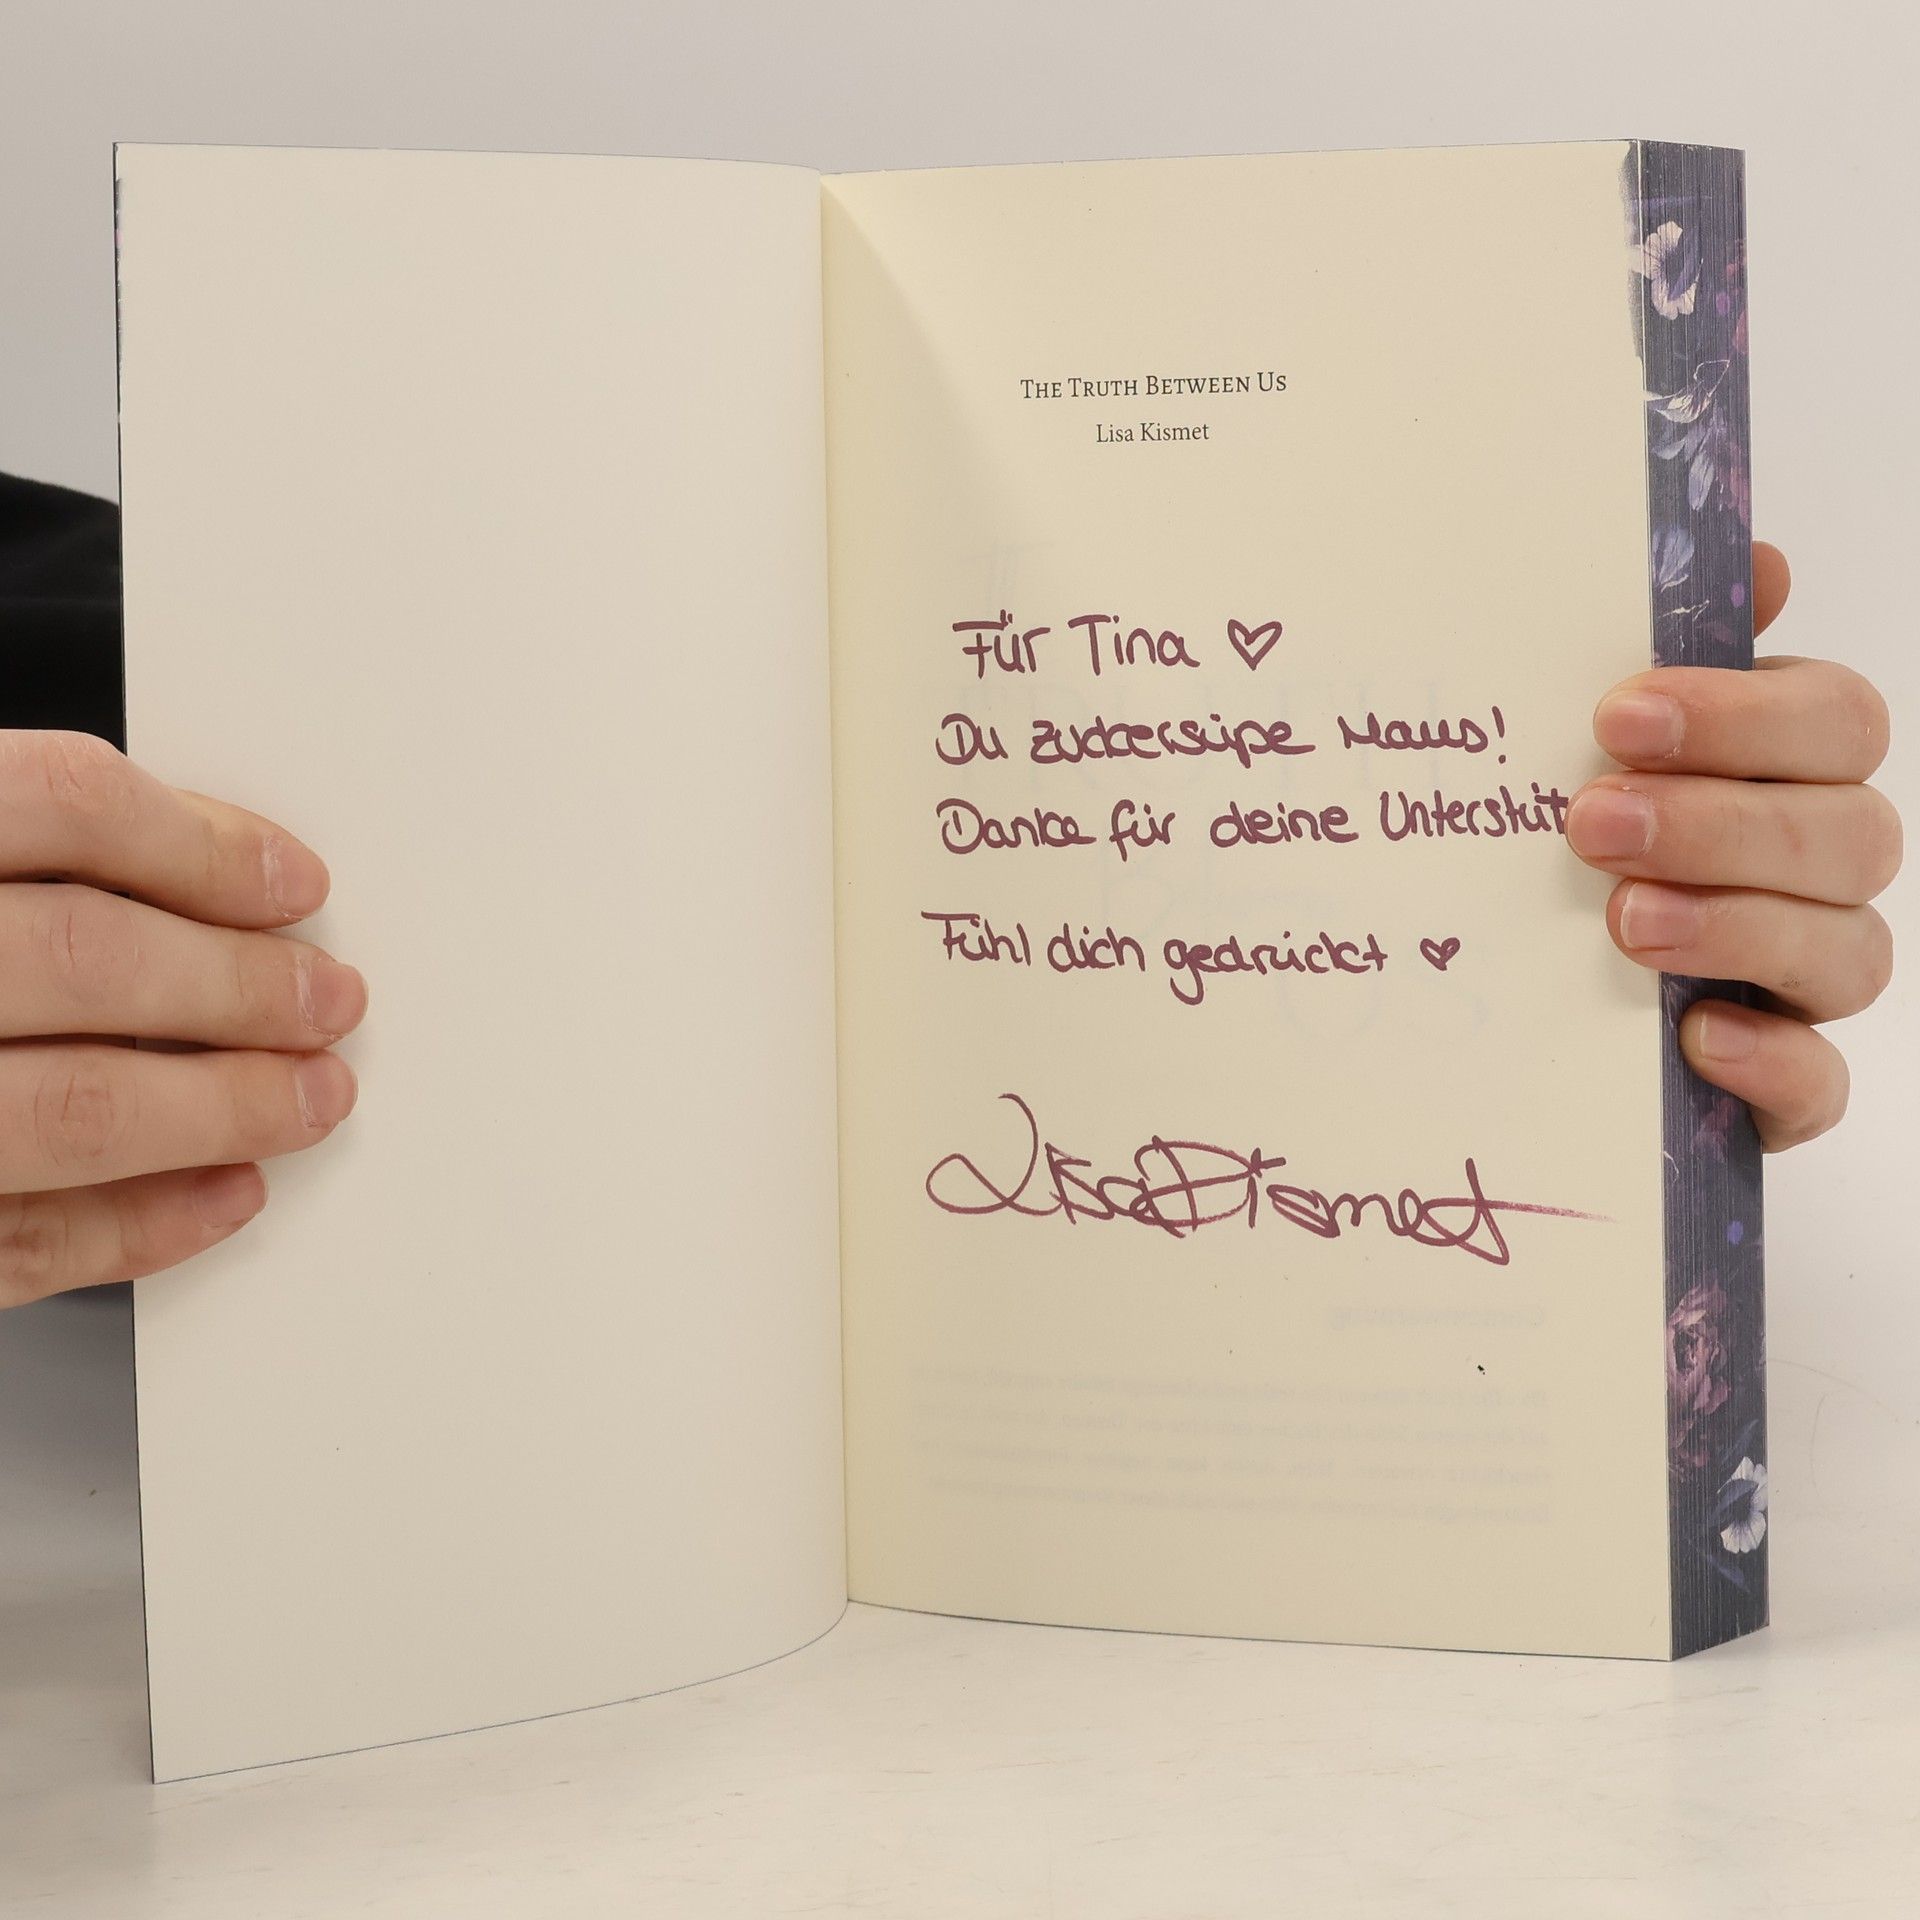 THE TRUTH BETWEEN US
Lisa Kismet
Für Tina ♡
Du zuckersüße Maus!
Danke für deine Unterstüt
Fühl dich gedrückt ♡
Lisa Kismet